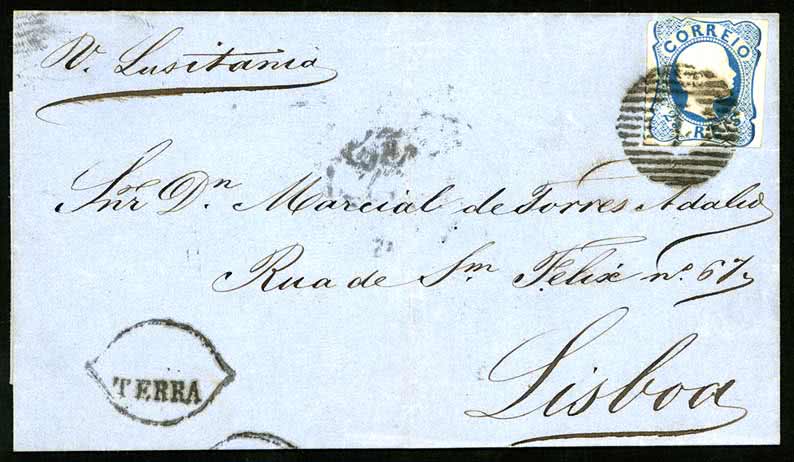 V. Lusitania
CORREIO
REIS
Snr Dn Marcial de Torres Adalid
Rua de Sm Felix no. 67,
TERRA
Lisboa